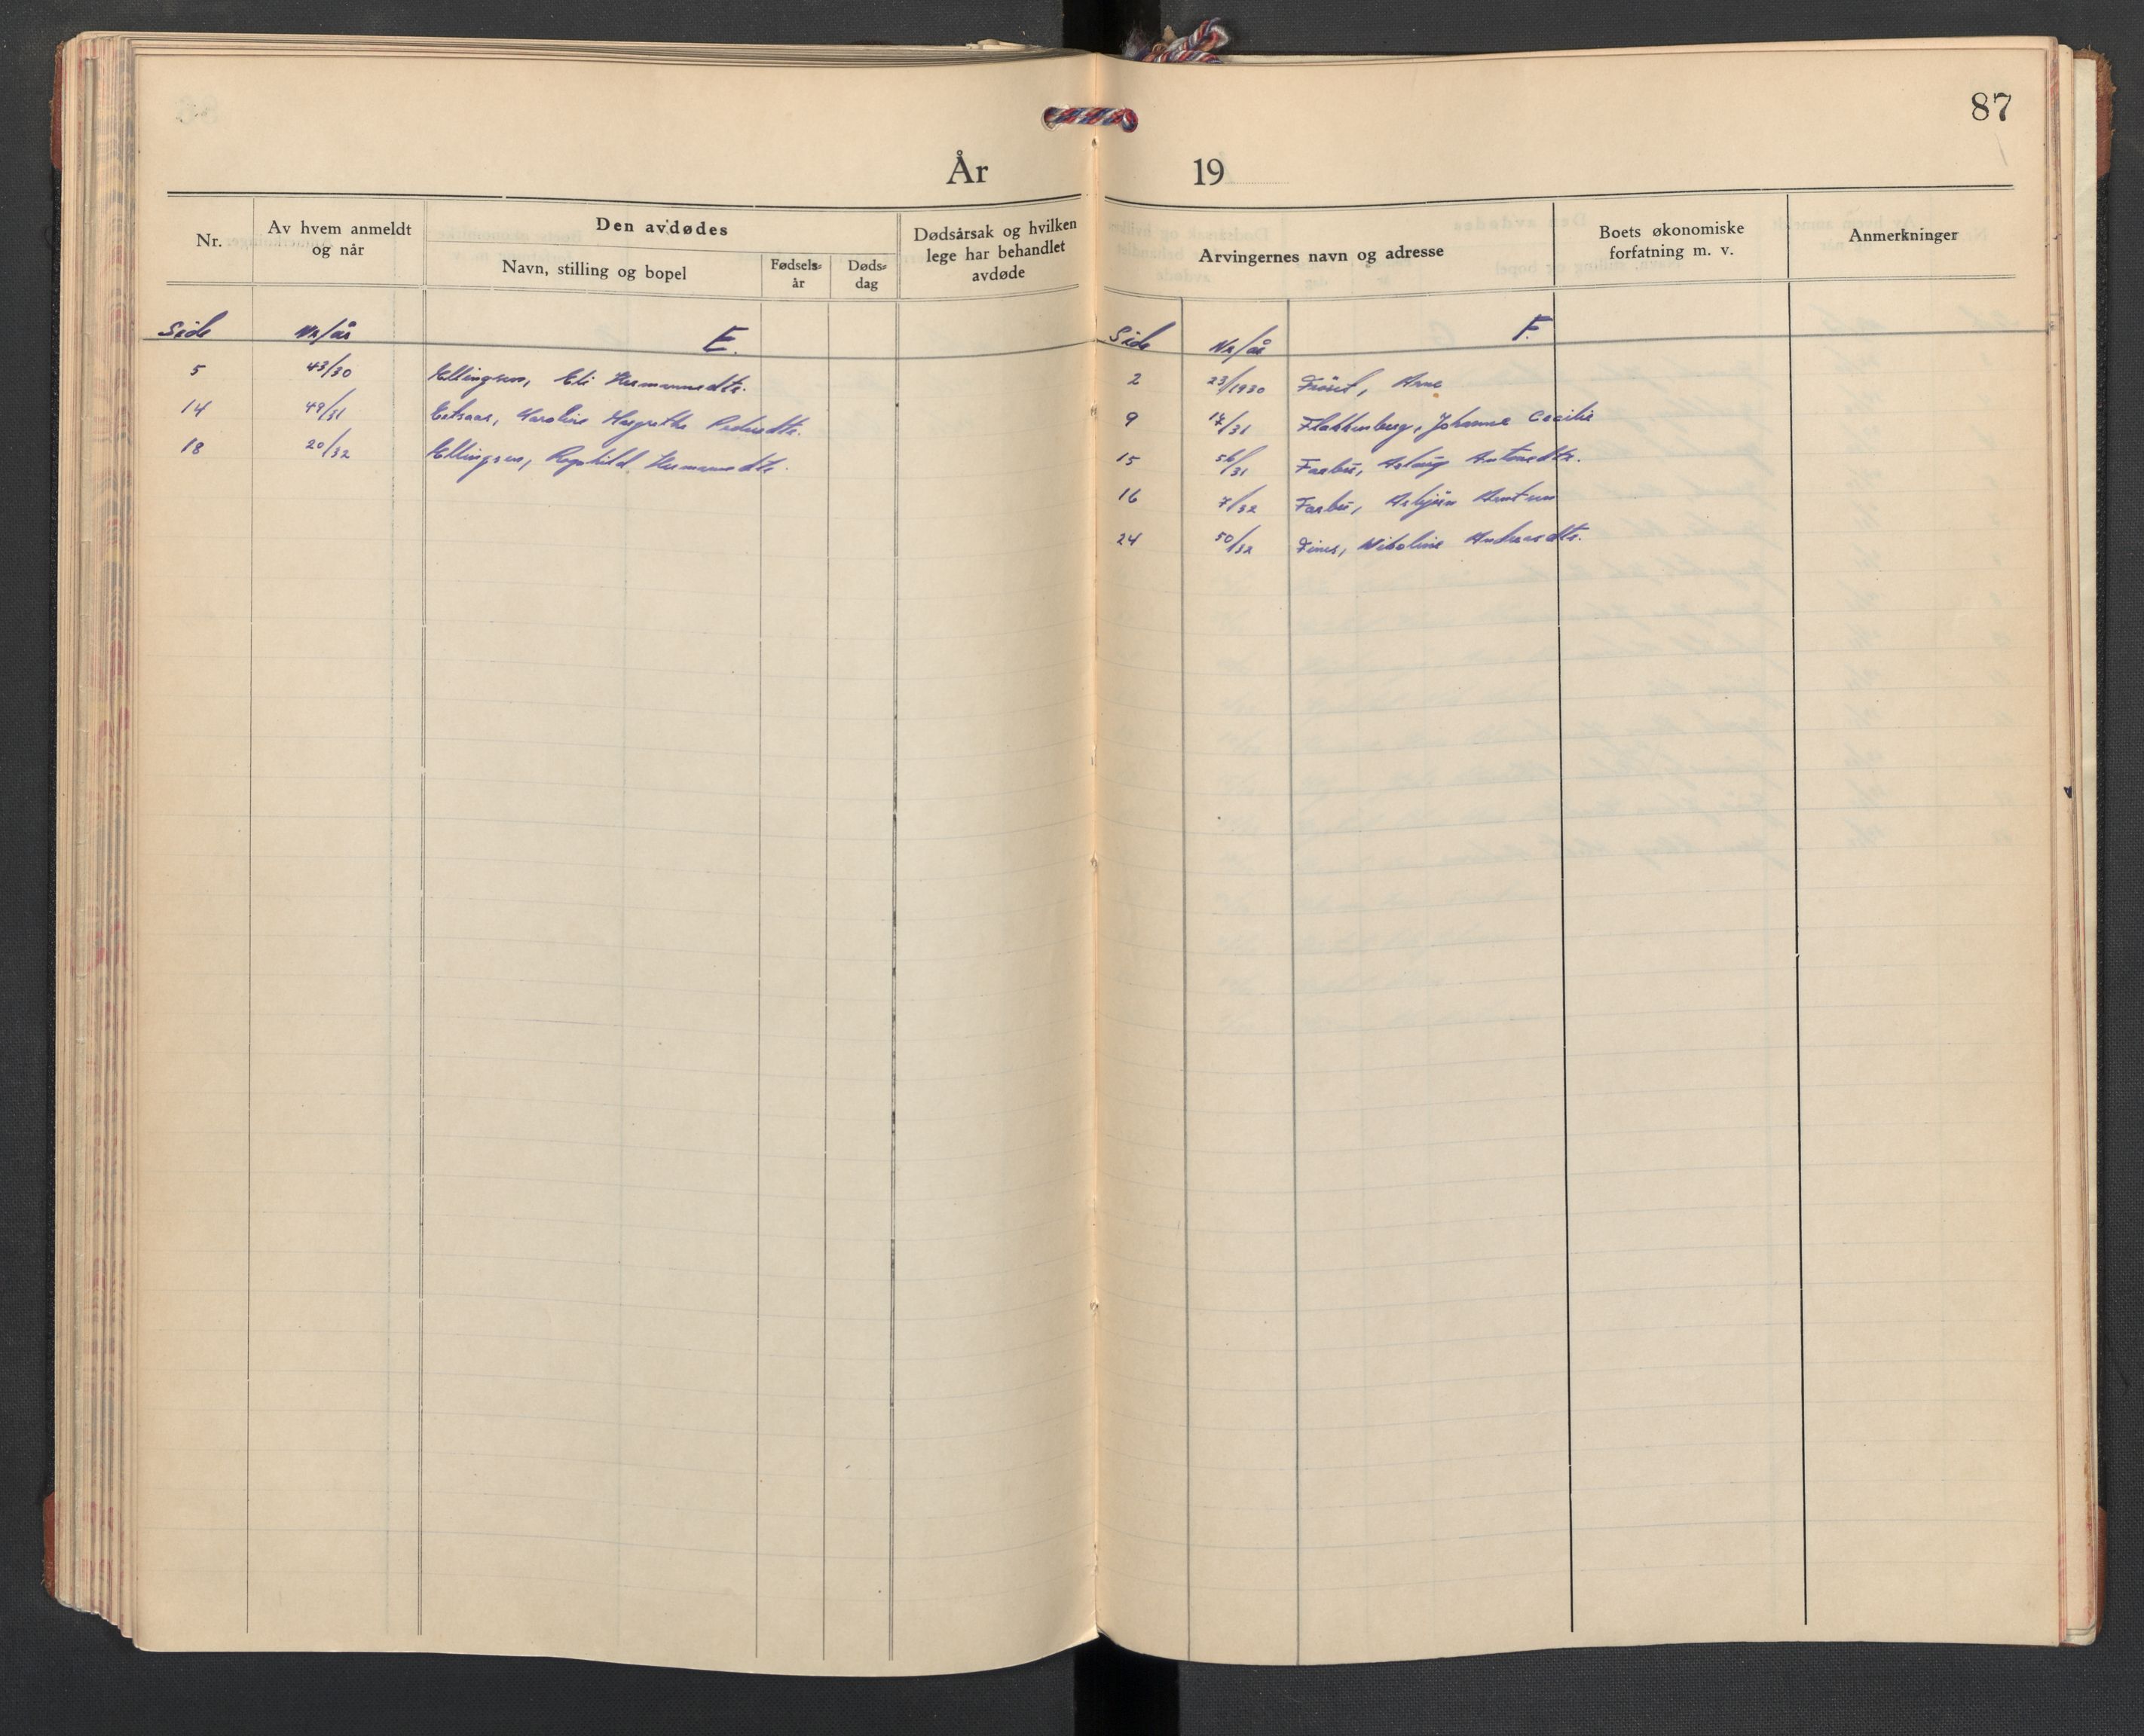 87
År 19
Nr.
Av hvem anmeldt og når
Den avdødes
Navn, stilling og bopel
Fødsels=år
Døds=dag
Dødsårsak og hvilken lege har behandlet avdøde
Arvingernes navn og adresse
Boets økonomiske forfatning m. v.
Anmerkninger
Side Nr/år E.
5 43/30 Ellingsen, Eli Hermannsdtr.
14 49/31 Karoline Margrethe Pedersdtr.
18 20/32 Ellingsen, Ragnhild Hermansdtr.
Side Nr/år F.
2 23/1930 Arne
9 17/31 Flakkenberg, Johanna Cecilie
15 56/31 Farbu, Aslaug Antonsdtr.
16 7/32 Farbu, Asbjørn
24 50/32 Nikoline Andreasdtr.